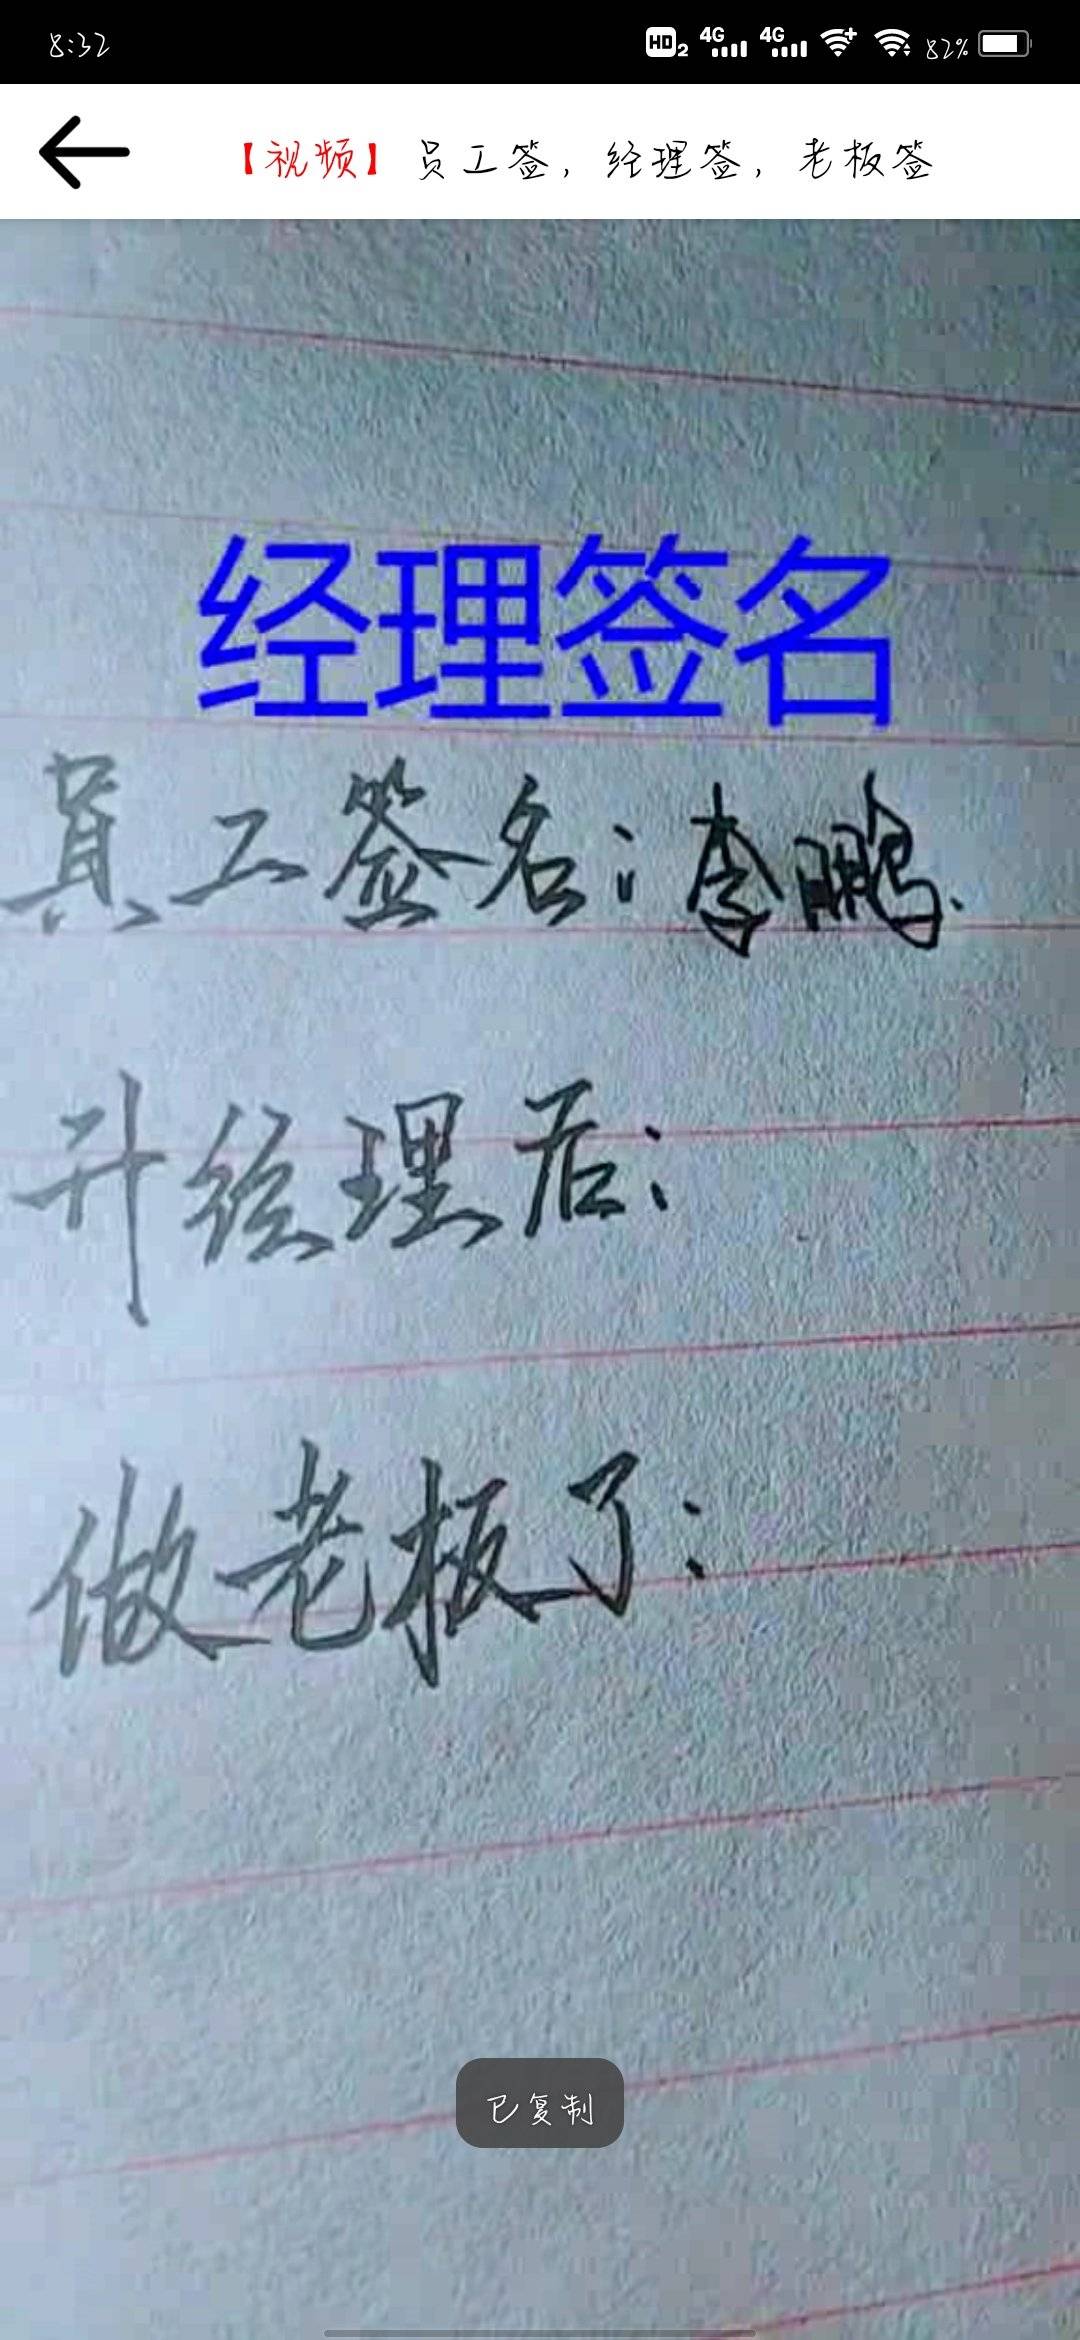 8:32 HD2 4G 4G 82%
【视频】员工签，经理签，老板签
经理签名
员工签名：李鹏.
升经理后：
做老板了：
已复制